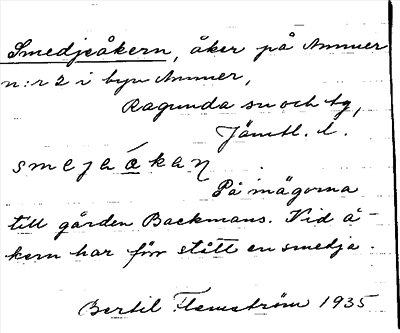 Smedjeåkern, åker på Ammer
n:r 2 i byn Ammer,
Ragunda sn och tg,
Jämtl. l.
smejeákaɳ
På mägorna
till gården Backmans. Vid å-
kern har förr stått en smedja.
Bertil Flemström 1935